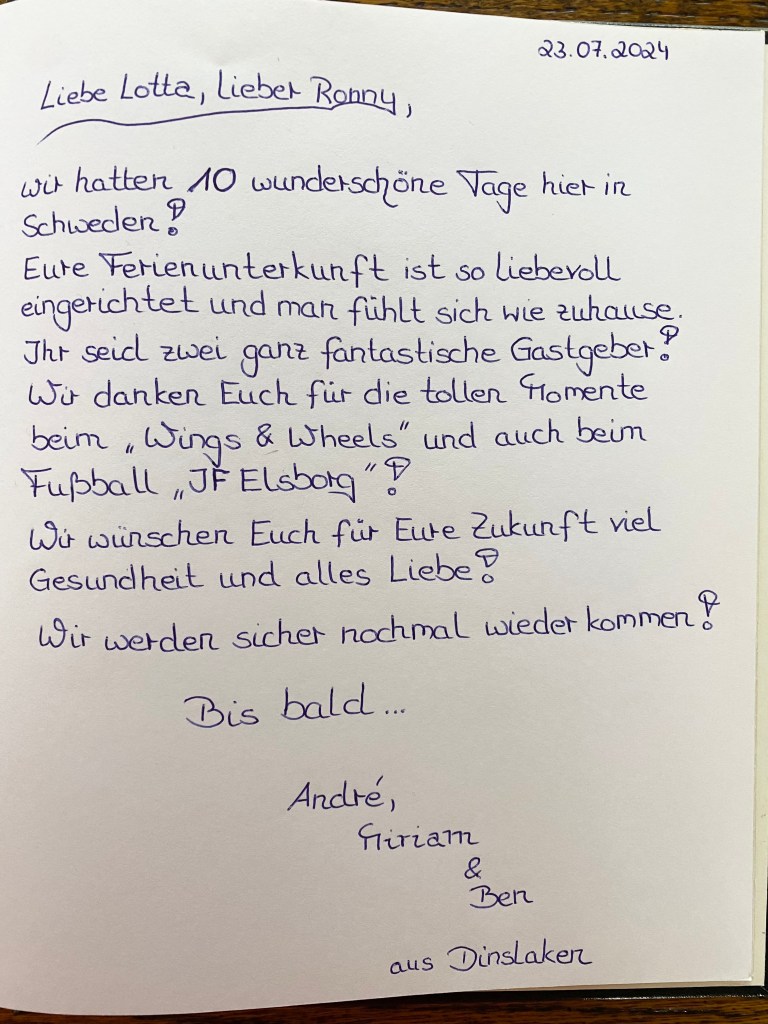 23.07.2024
Liebe Lotta, Lieber Ronny,
wir hatten 10 wunderschöne Tage hier in
Schweden!
Eure Ferienunterkunft ist so liebevoll
eingerichtet und man fühlt sich wie zuhause.
Ihr seid zwei ganz fantastische Gastgeber!
Wir danken Euch für die tollen Momente
beim „Wings & Wheels" und auch beim
Fußball „JF Elsborg"!
Wir wünschen Euch für Eure Zukunft viel
Gesundheit und alles Liebe!
Wir werden sicher nochmal wieder kommen!
Bis bald...
André,
Miriam
&
Ben
aus Dinslaken